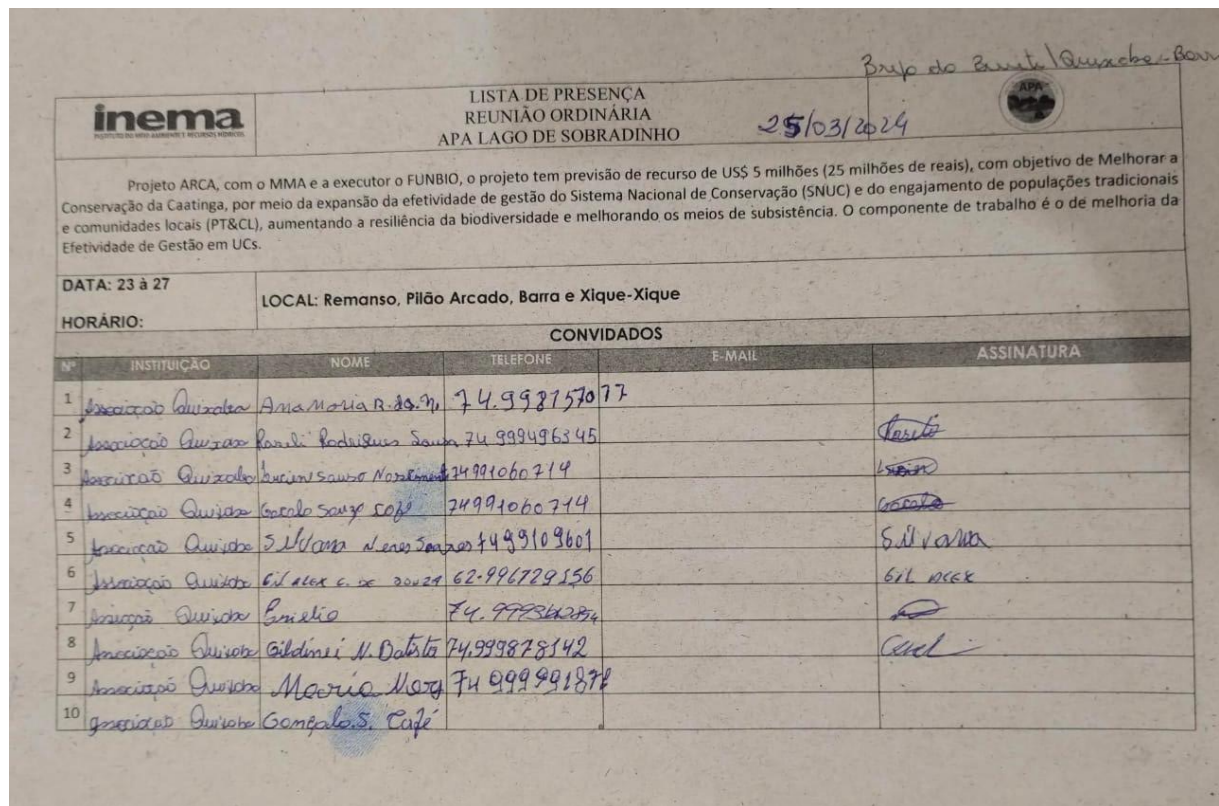 Brejo do Buriti / Quixaba-Barra
inema
INSTITUTO DO MEIO AMBIENTE E RECURSOS HÍDRICOS
LISTA DE PRESENÇA
REUNIÃO ORDINÁRIA
APA LAGO DE SOBRADINHO
25/03/2024
APA
Projeto ARCA, com o MMA e a executor o FUNBIO, o projeto tem previsão de recurso de US$ 5 milhões (25 milhões de reais), com objetivo de Melhorar a
Conservação da Caatinga, por meio da expansão da efetividade de gestão do Sistema Nacional de Conservação (SNUC) e do engajamento de populações tradicionais
e comunidades locais (PT&CL), aumentando a resiliência da biodiversidade e melhorando os meios de subsistência. O componente de trabalho é o de melhoria da
Efetividade de Gestão em UCs.
DATA: 23 à 27
LOCAL: Remanso, Pilão Arcado, Barra e Xique-Xique
HORÁRIO:
CONVIDADOS
Nº INSTITUIÇÃO NOME TELEFONE E-MAIL ASSINATURA
1 Associação Quixaba Ana Maria R. 74.998157077
2 Associação Roseli Rodrigues Souza 74 999496345
3 Associação Quixaba Souza Nascimento 74991060714
4 Associação Quixaba Souza Café 74991060714
5 Associação Quixaba Silvana Neres Soares 7499109601 Silvana
6 Associação Quixaba Gil Alex C. de Souza 62-996729156 Gil Alex
7 Associação Quixaba
8 Associação Quixaba Gildinei N. Batista 74.999878142
9 Associação Quixaba Maria
10 Associação Quixaba Gonçalo.S. Café